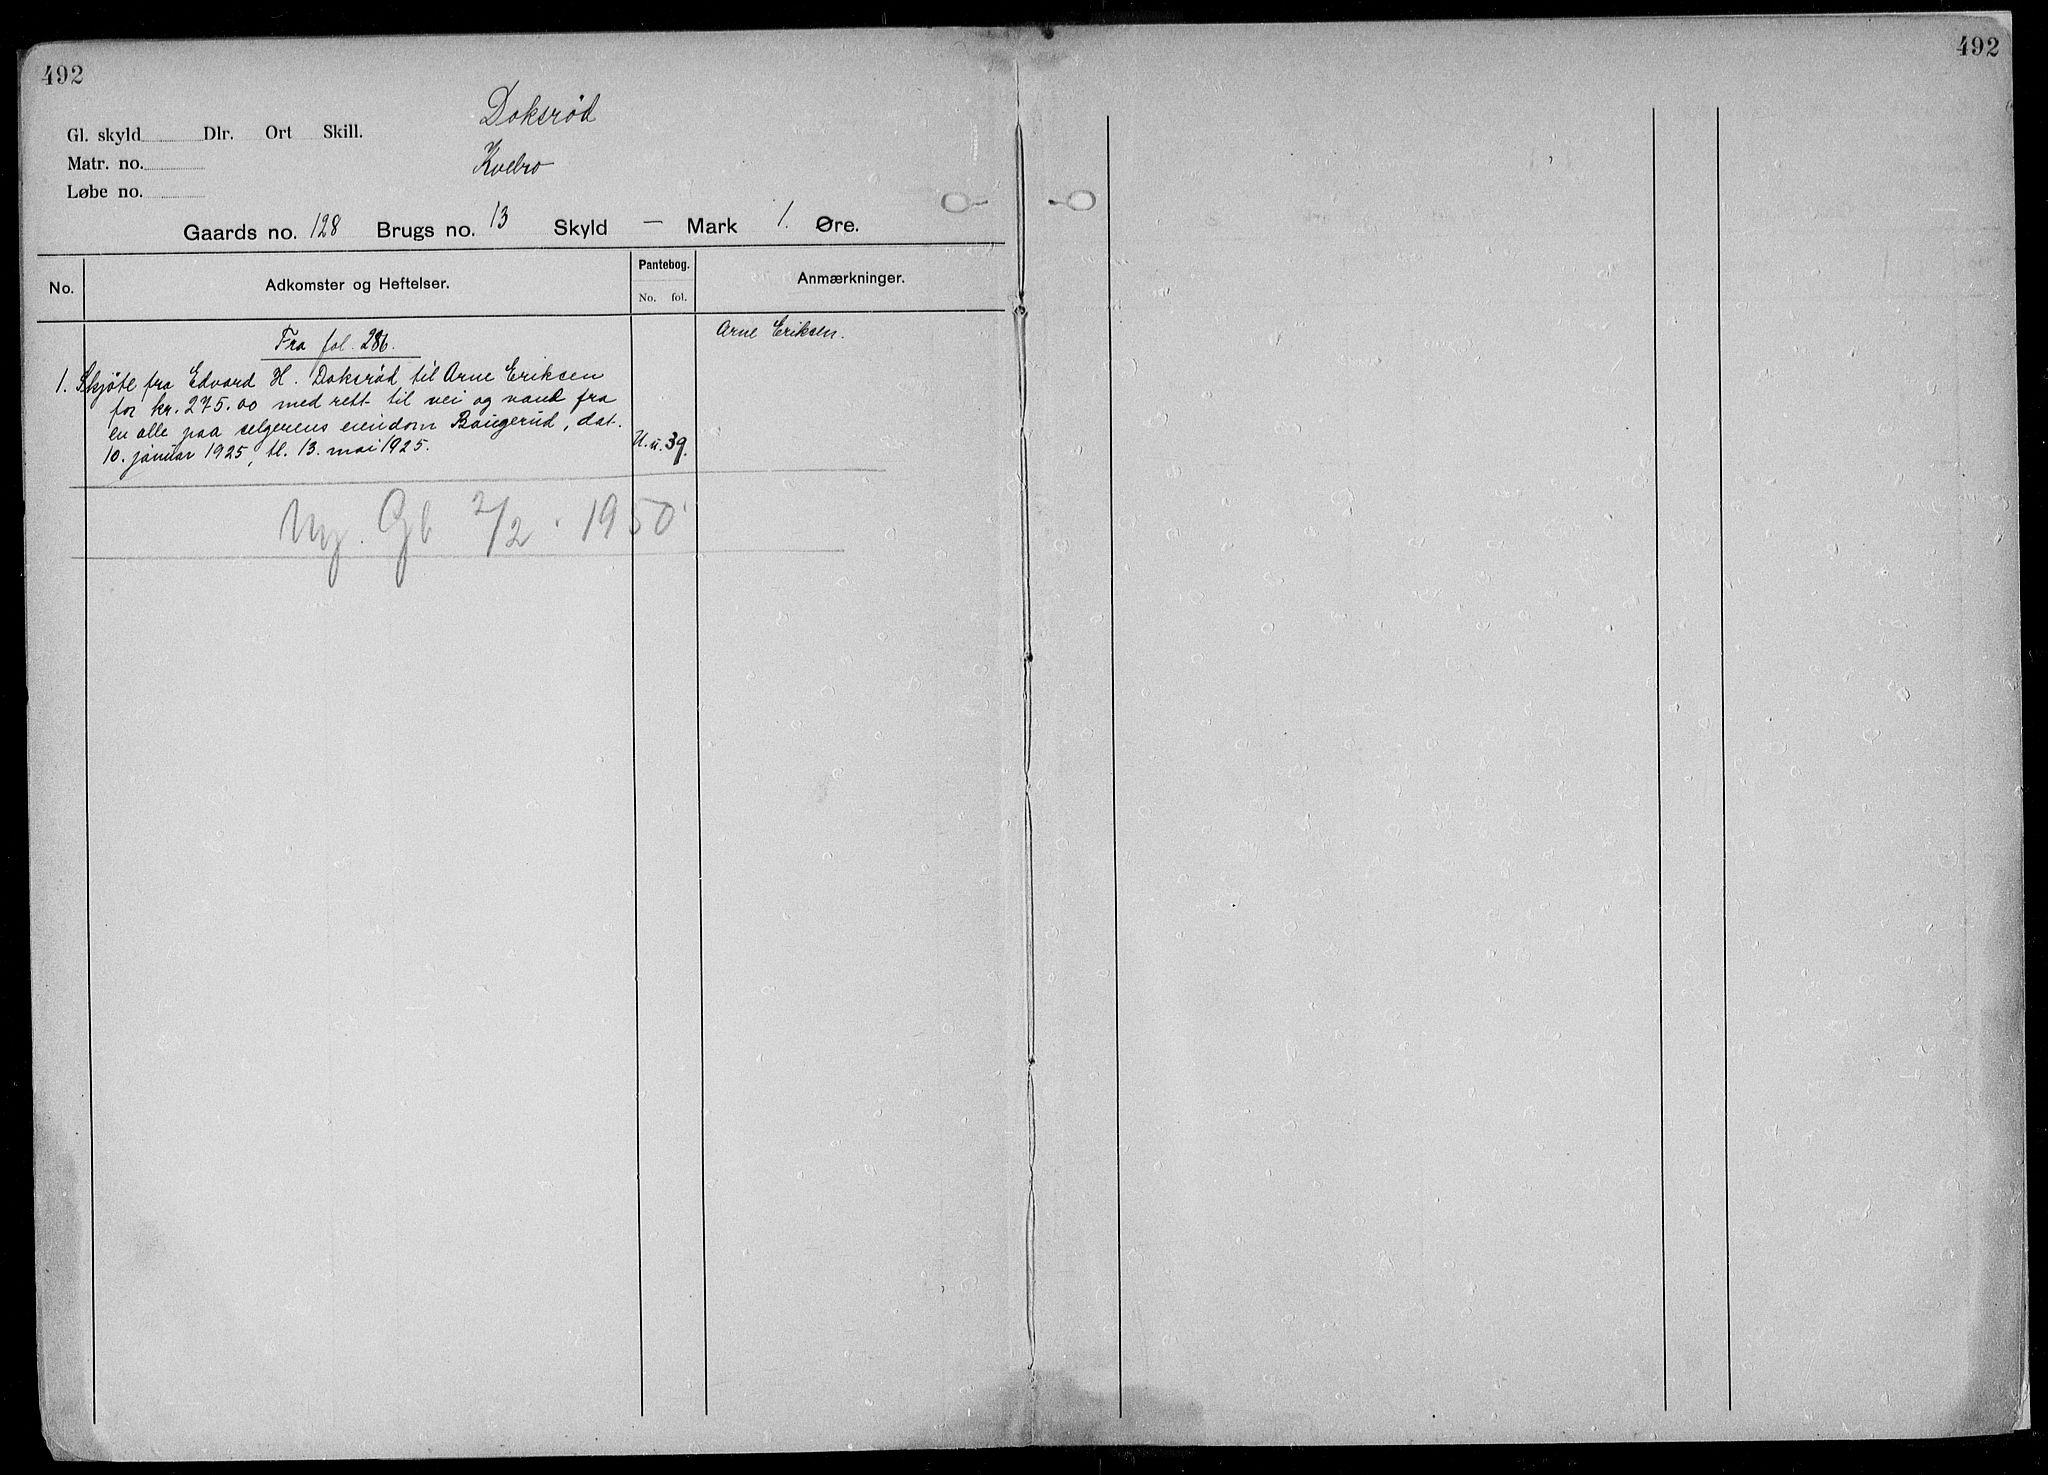 492
492
Doksrød
Gl. skyld Dlr. Ort Skill.
Matr. no.
Kvelro
Løbe no.
Gaards no. 128 Brugs no. 13 Skyld — Mark 1. Øre.
No. Adkomster og Heftelser. Pantebog. No. fol. Anmærkninger.
Fra fol. 286. Arne Eriksen.
1. Skjøte fra Edvard H. Doksrød til Arne Eriksen
for kr. 275.00 med rett til vei og vand fra
en olle paa selgerens eiendom Baugerud, dat.
10. januar 1925, tl. 13. mai 1925. U.u. 39.
Ny. Gb 2/2 . 1950